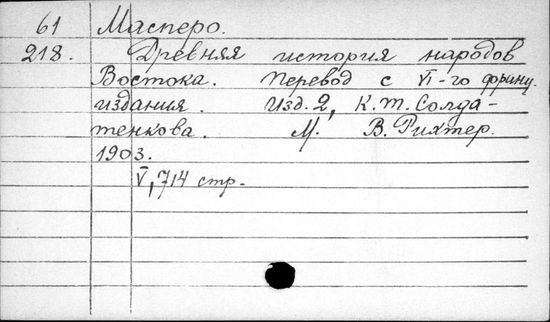 61 Масперо.
218. Древняя история народов
Востока. Перевод с VI-го франц.
издания. Изд. 2, К.Т. Солда-
тенкова. М. В. Рихтер.
1903.
V, 714 стр.